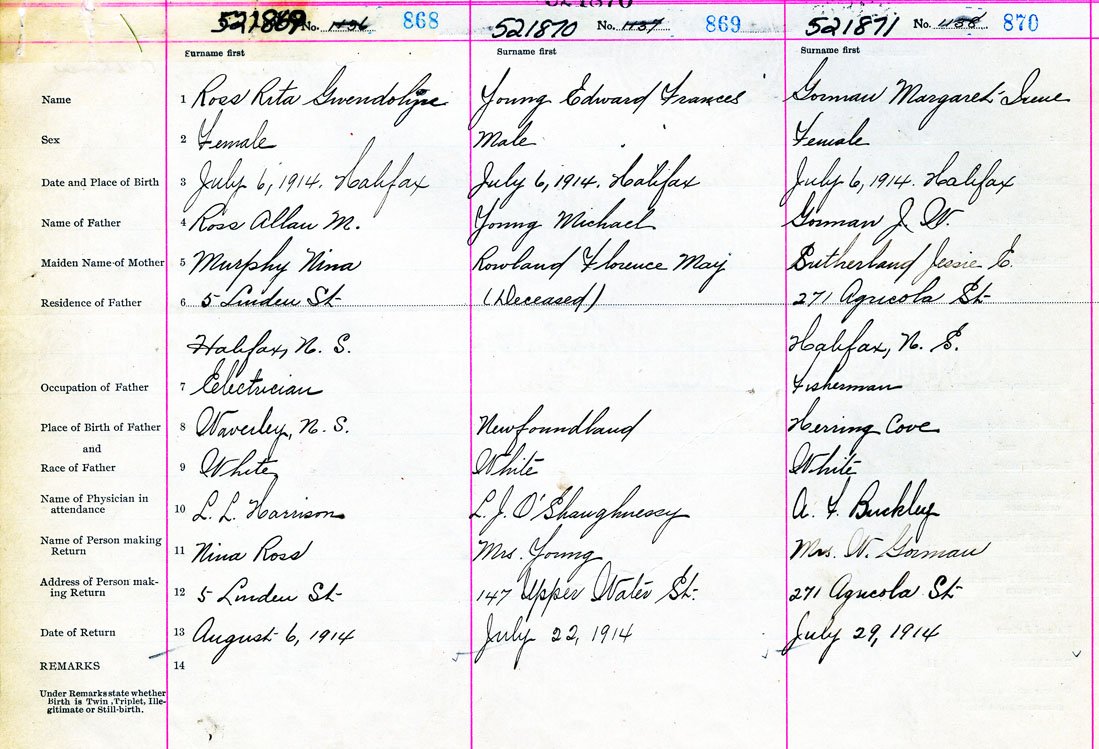 521870
521869 No. 1136 868 521870 No. 1137 869 521871 No. 1138 870
Surname first Surname first Surname first
Name 1 Ross Rita Gwendolyne Young Edward Frances Gorman Margaret Irene
Sex 2 Female Male Female
Date and Place of Birth 3 July 6, 1914. Halifax July 6, 1914. Halifax July 6, 1914. Halifax
Name of Father 4 Ross Allan M. Young Michael Gorman J. W.
Maiden Name of Mother 5 Murphy Nina Rowland Florence May Sutherland Jessie E.
Residence of Father 6 5 Linden St (Deceased) 271 Agricola St
Halifax, N. S. Halifax, N. S.
Occupation of Father 7 Electrician Fisherman
Place of Birth of Father 8 Waverley, N. S. Newfoundland Herring Cove
and
Race of Father 9 White White White
Name of Physician in
attendance 10 L. L. Harrison L. J. O'Shaughnessy A. F. Buckley
Name of Person making
Return 11 Nina Ross Mrs. Young Mrs. W. Gorman
Address of Person mak-
ing Return 12 5 Linden St 147 Upper Water St. 271 Agricola St
Date of Return 13 August 6, 1914 July 22, 1914 July 29, 1914
REMARKS 14
Under Remarks state whether
Birth is Twin, Triplet, Ille-
gitimate or Still-birth.